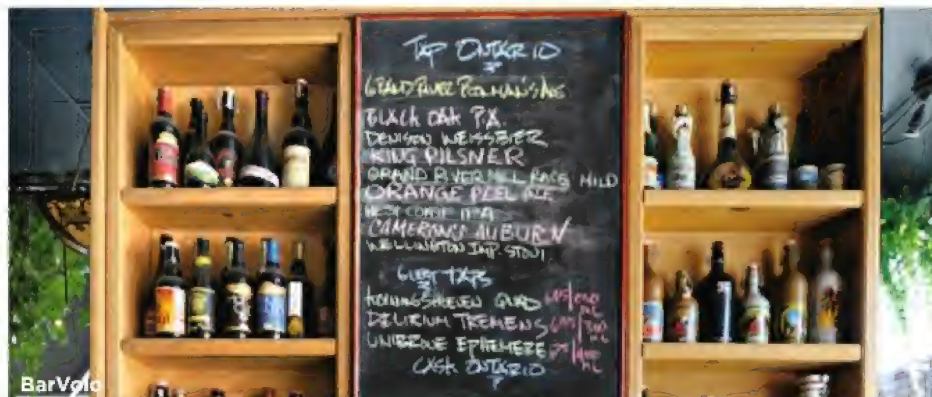 TAP ONTARIO
GRAND RIVER PLOWMAN'S ALE
BLACK OAK P.A.
DENISON WEISSBIER
KING PILSNER
GRAND RIVER MILL RACE MILD
ORANGE PEEL ALE
WEST COAST IPA
CAMERON'S AUBURN
WELLINGTON IMP. STOUT
GUEST TAPS
KONINGSHOEVEN QUAD
DELIRIUM TREMENS
UNIBROUE EPHEMERE
CASK ONTARIO
BarVolo